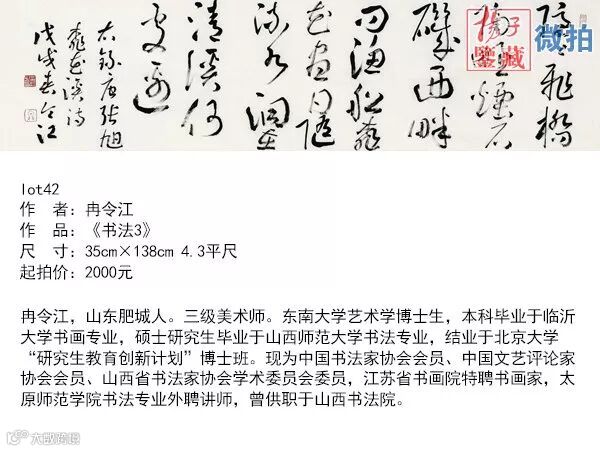 隱隱飛橋
隔野煙石
磯西畔
問漁船桃
花盡日隨
流水洞在
清溪何
處邊
右錄唐張旭
桃花溪詩
戊戌春令江
揚子
鑒藏
微拍
lot42
作 者：冉令江
作 品：《书法3》
尺 寸：35cm×138cm 4.3平尺
起拍价：2000元
冉令江，山东肥城人。三级美术师。东南大学艺术学博士生，本科毕业于临沂
大学书画专业，硕士研究生毕业于山西师范大学书法专业，结业于北京大学
“研究生教育创新计划”博士班。现为中国书法家协会会员、中国文艺评论家
协会会员、山西省书法家协会学术委员会委员，江苏省书画院特聘书画家，太
原师范学院书法专业外聘讲师，曾供职于山西书法院。
大数跨境